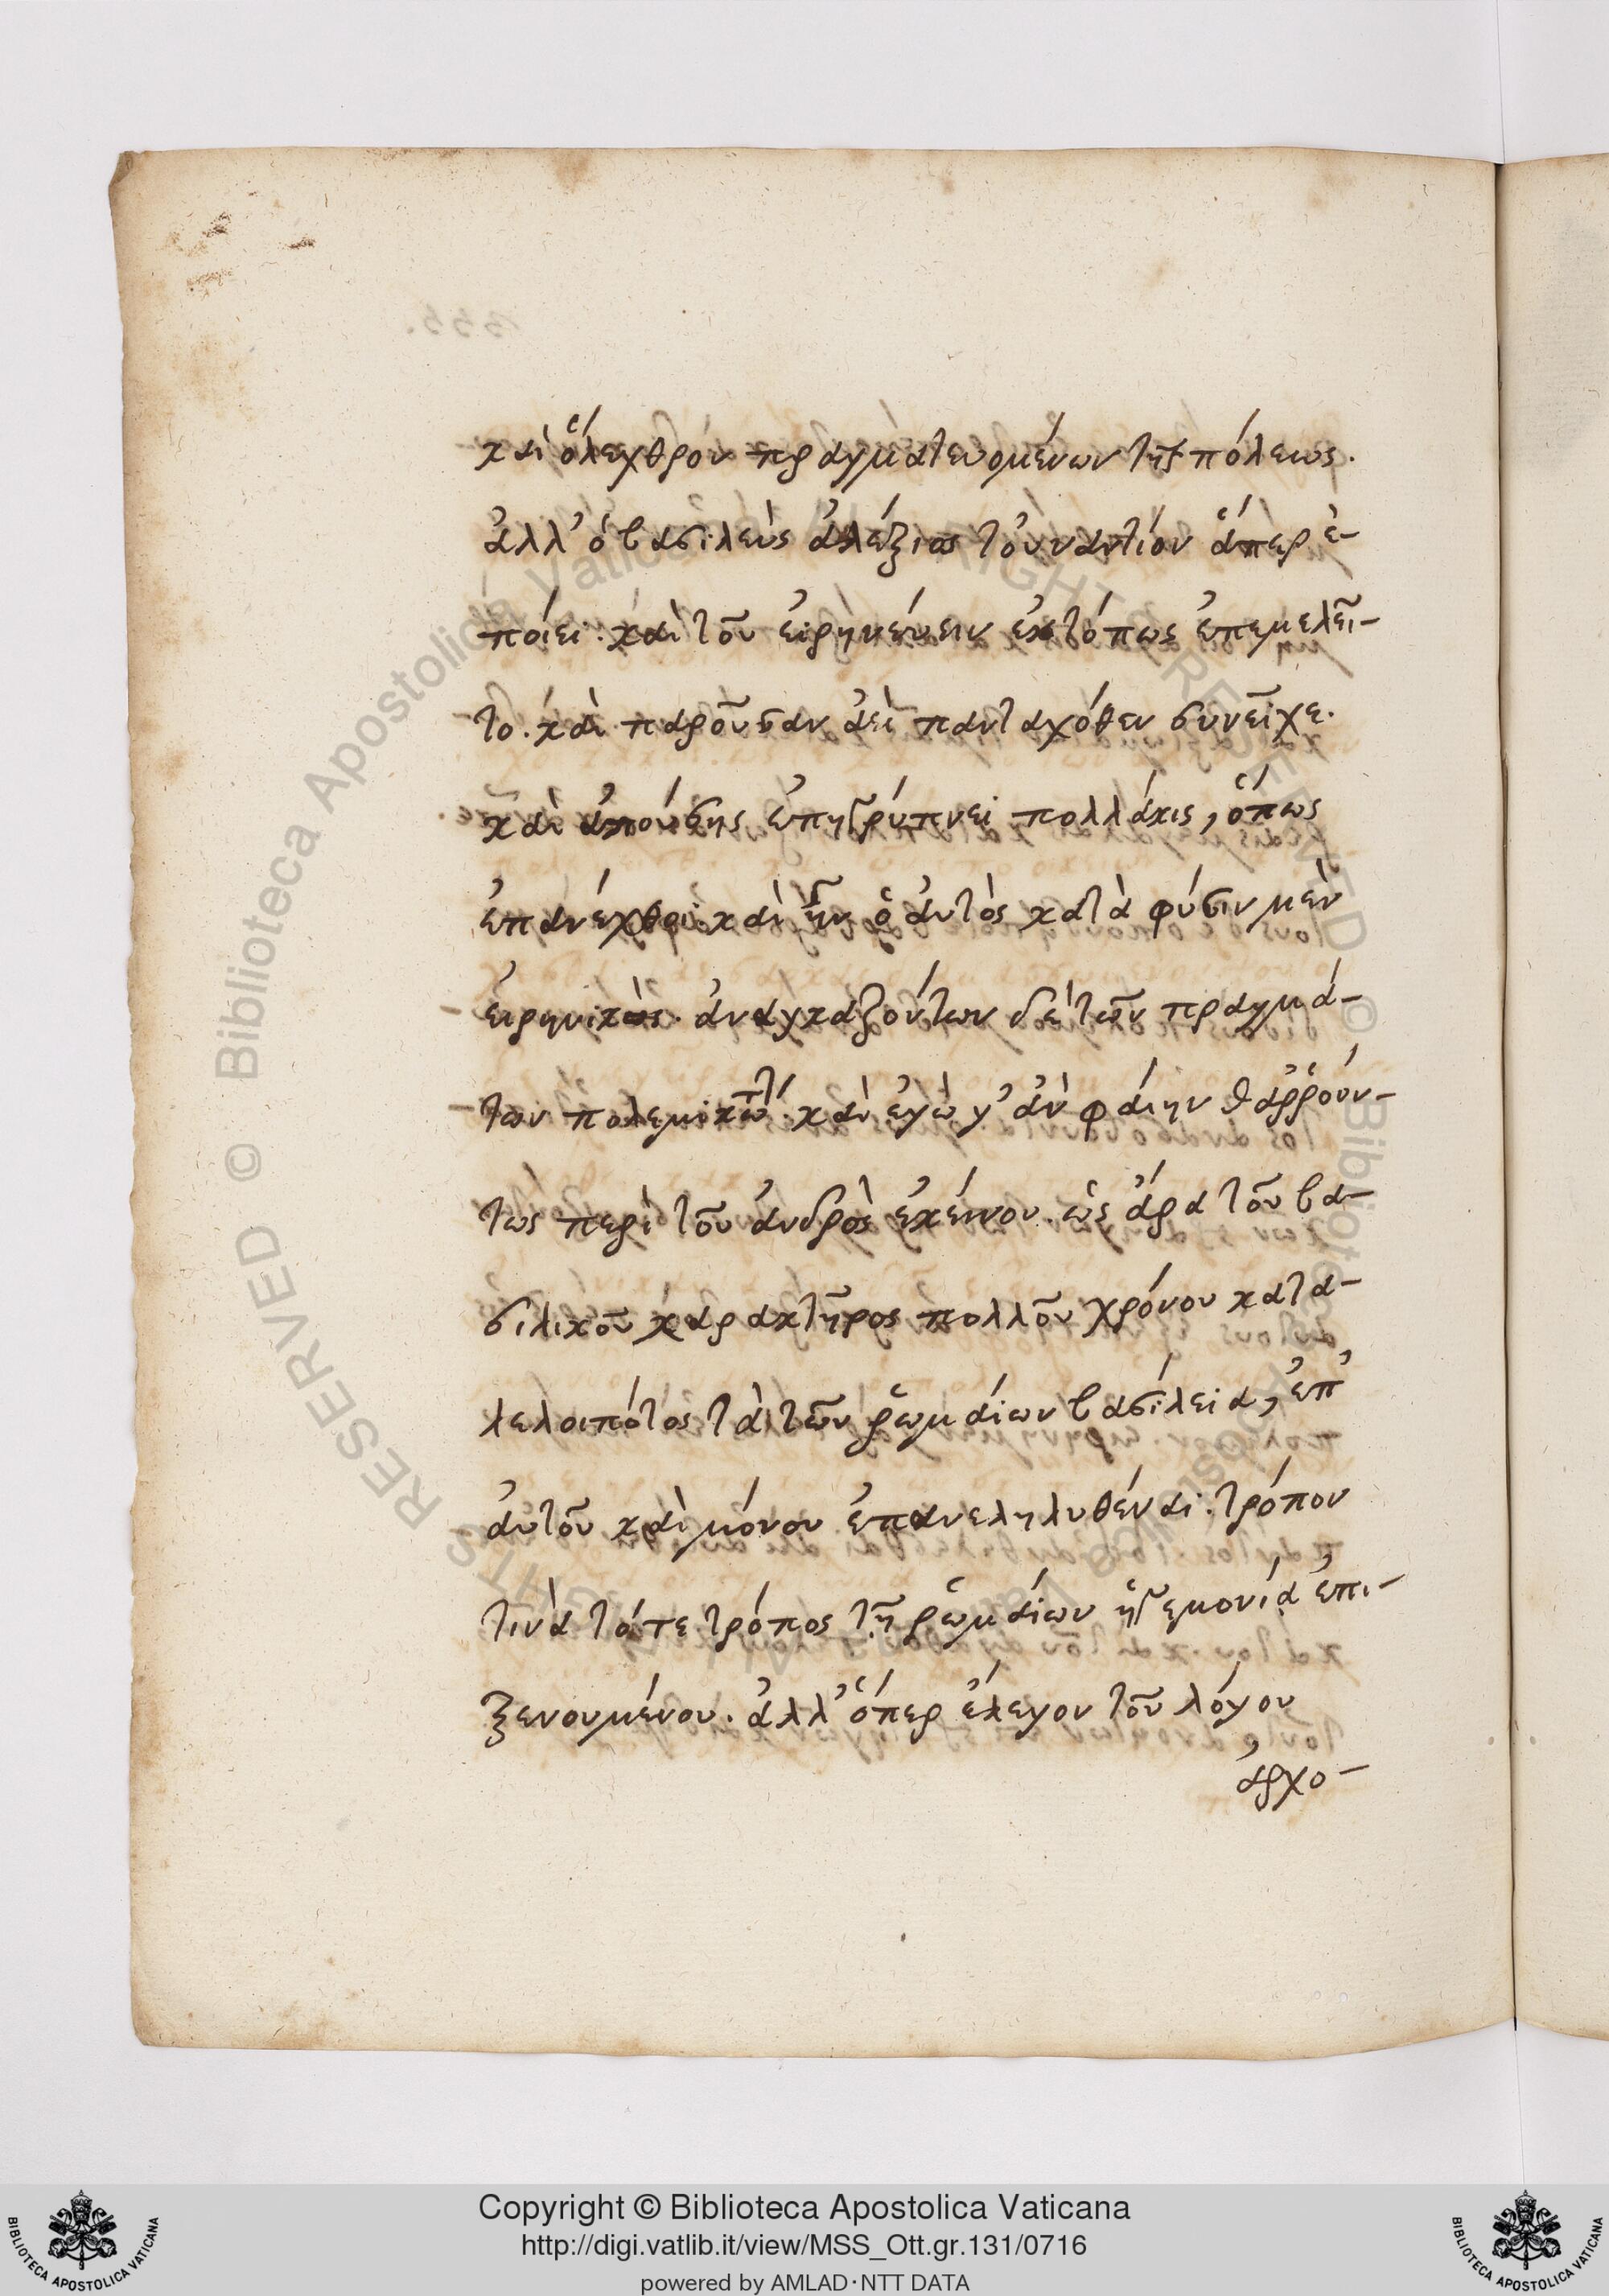 καὶ ὄλεχθρον πραγματευομένων τῆς πόλεως.
ἀλλ' ὁ βασιλεὺς ἀλέξιος τοὐναντίον ἅπερ ἐ-
ποίει. καὶ τοῦ εἰρηνεύειν ἐκτόπως ἐπεμελεῖ-
το. καὶ παροῦσαν ἀεὶ πανταχόθεν συνεῖχε.
καὶ ἀπούσης ἐπηγρύπνει πολλάκις, ὅπως
ἐπανέχθοι. καὶ ἦν ὁ αὐτὸς κατὰ φύσιν μὲν
εἰρηνικὸς. ἀναγκαζόντων δὲ τῶν πραγμά-
των πολεμικώτ. καὶ ἐγὼ γ' ἂν φαίην θαῤῥούν-
τως περὶ τοῦ ἀνδρὸς ἐκείνου. ὡς ἄρα τοῦ βα-
σιλικοῦ χαρακτῆρος πολλοῦ χρόνου κατα-
λελοιπότος τὰ τῶν ῥωμαίων βασίλεια, ἐπ'
αὐτοῦ καὶ μόνου ἐπανεληλυθέναι. τρόπον
τινὰ τότε τρόπος τῇ ῥωμαίων ἡγεμονίᾳ ἐπι-
ξενουμένου. ἀλλ' ὅπερ ἔλεγον τοῦ λόγου
ἀρχο-
Copyright © Biblioteca Apostolica Vaticana
http://digi.vatlib.it/view/MSS_Ott.gr.131/0716
powered by AMLAD·NTT DATA
BIBLIOTECA APOSTOLICA VATICANA
BIBLIOTECA APOSTOLICA VATICANA